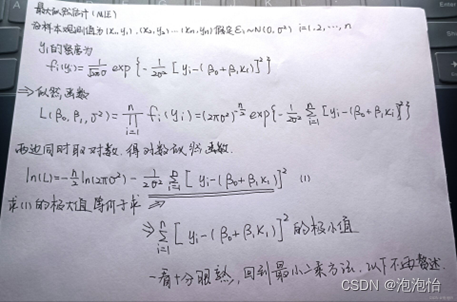 最大似然估计(MLE)
为样本观测值为(x₁,y₁),(x₂,y₂)…(xₙ,yₙ)假定εᵢ~N(0,σ²) i=1,2,…,n
yᵢ的密度为
fᵢ(yᵢ)=1/√(2πσ) exp{-1/(2σ²)[yᵢ-(β₀+β₁xᵢ)]²}
⇒似然函数
L(β₀,β₁,σ²)=∏ᵢ₌₁ⁿ fᵢ(yᵢ)=(2πσ²)^(-n/2) exp{-1/(2σ²) Σᵢ₌₁ⁿ[yᵢ-(β₀+β₁xᵢ)]²}
两边同时取对数,得对数似然函数.
ln(L)=-n/2 ln(2πσ²)-1/(2σ²) Σᵢ₌₁ⁿ[yᵢ-(β₀+β₁xᵢ)]² (1)
求(1)的极大值等价于求
⇒Σᵢ₌₁ⁿ[yᵢ-(β₀+β₁xᵢ)]²的极小值
一看十分眼熟,回到最小二乘方法,以下不再赘述.
CSDN @泡泡怡